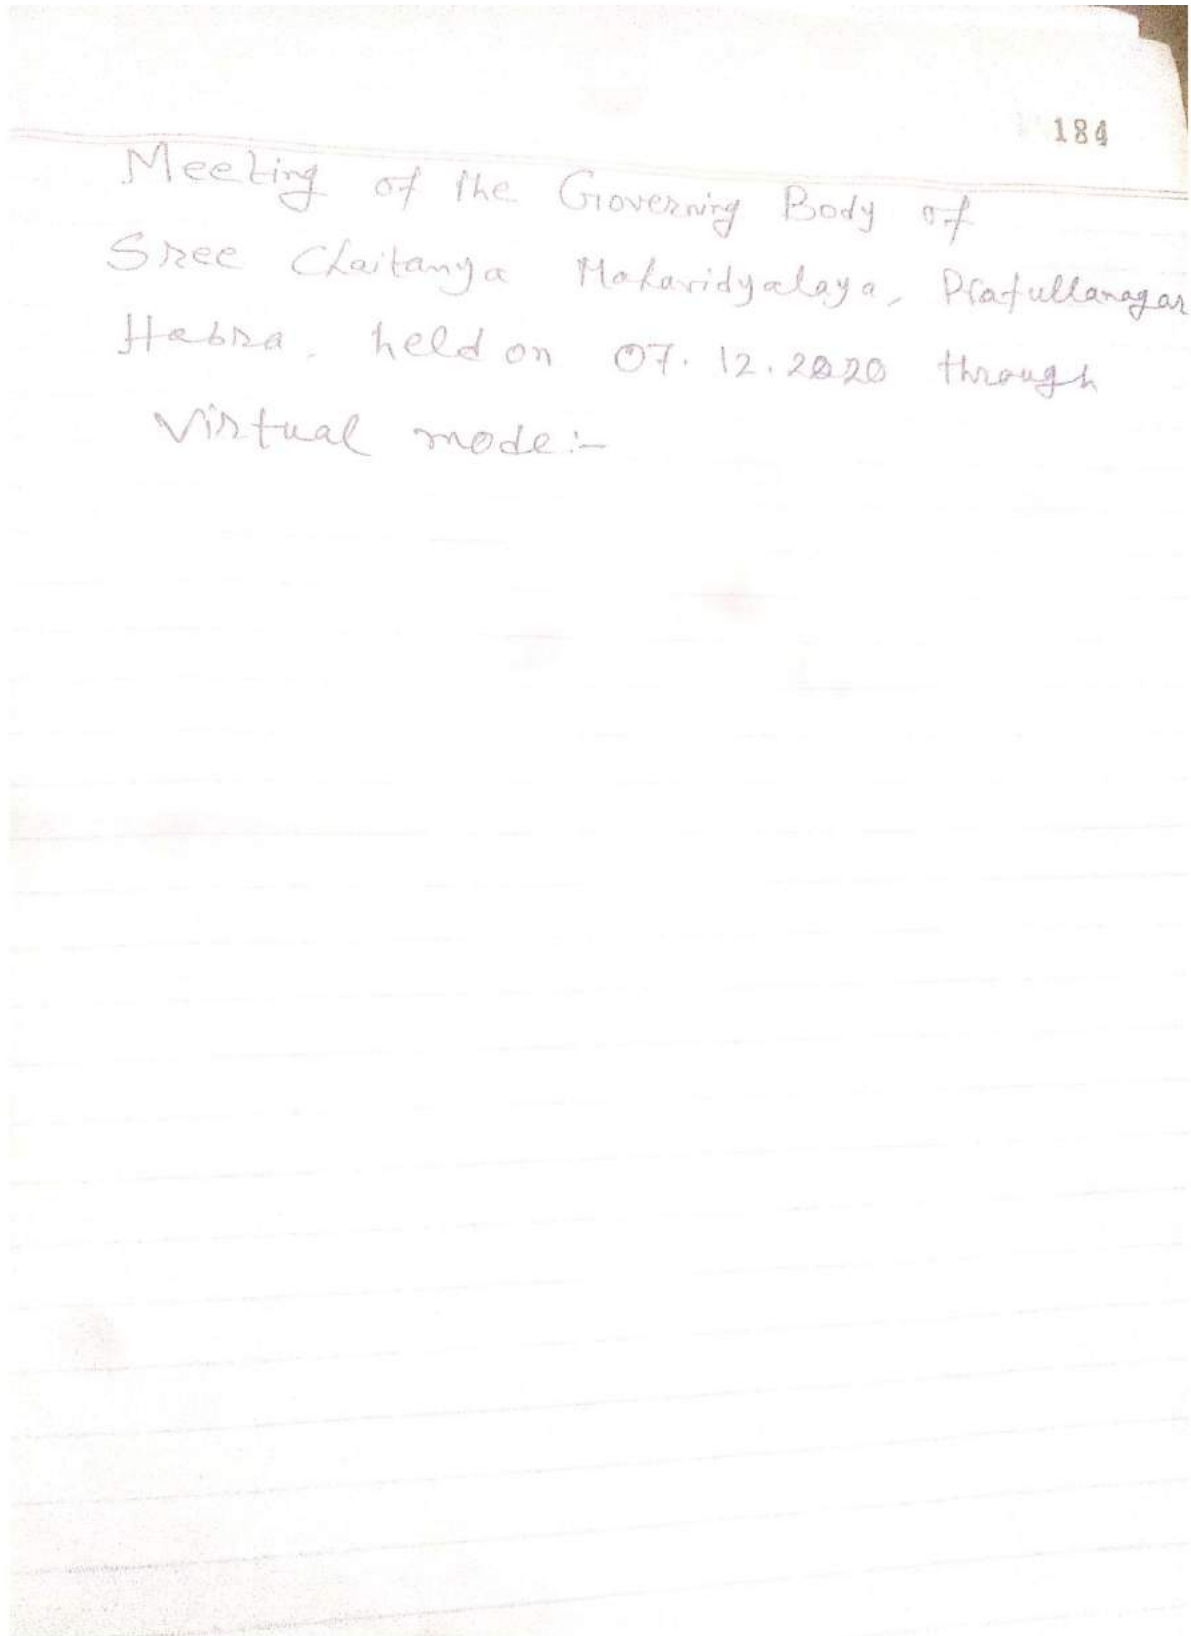 184
Meeting of the Governing Body of
Sree Chaitanya Mahavidyalaya, Prafullanagar
Habra, held on 07.12.2020 through
Virtual mode:-